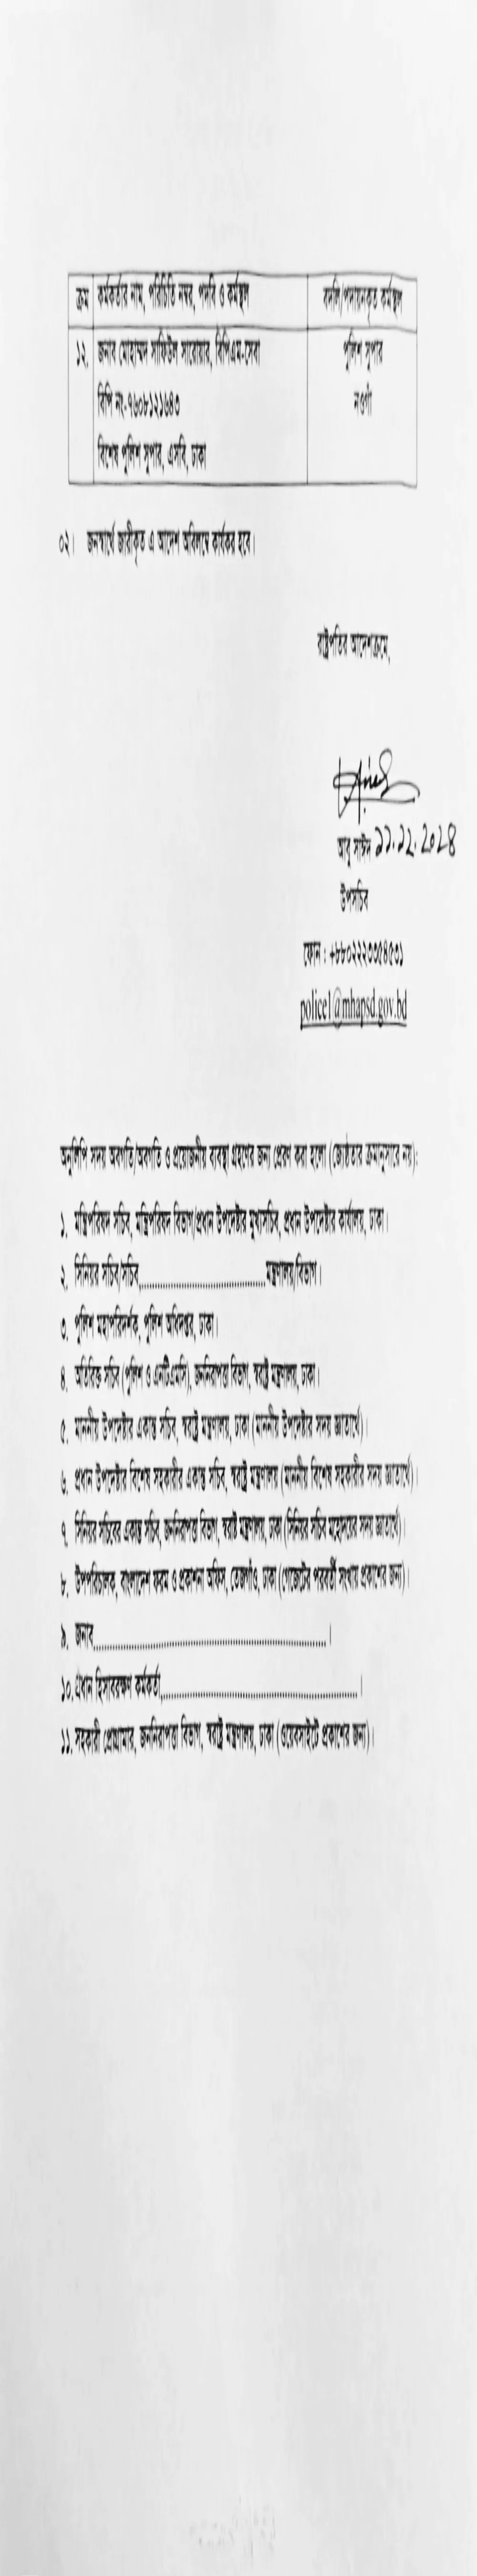 ক্রম কর্মকর্তার নাম, পরিচিতি নম্বর, পদবি ও কর্মস্থল বদলি/পদায়নকৃত কর্মস্থল
১২. জনাব মোহাম্মদ সাফিউল সারোয়ার, বিপিএম-সেবা পুলিশ সুপার
বিপি নং-৭৬০৮১২১৬৪৩ নওগাঁ
বিশেষ পুলিশ সুপার, এসবি, ঢাকা
০২। জনস্বার্থে জারীকৃত এ আদেশ অবিলম্বে কার্যকর হবে।
রাষ্ট্রপতির আদেশক্রমে,
আবু সাঈদ ১১.১২.২০২৪
উপসচিব
ফোন : +৮৮০২২২৩৩৫৪৫৩১
police1@mhapsd.gov.bd
অনুলিপি সদয় অবগতি/অবগতি ও প্রয়োজনীয় ব্যবস্থা গ্রহণের জন্য প্রেরণ করা হলো (জ্যেষ্ঠতার ক্রমানুসারে নয়):
১. মন্ত্রিপরিষদ সচিব, মন্ত্রিপরিষদ বিভাগ/প্রধান উপদেষ্টার মুখ্যসচিব, প্রধান উপদেষ্টার কার্যালয়, ঢাকা।
২. সিনিয়র সচিব/সচিব,........................................মন্ত্রণালয়/বিভাগ।
৩. পুলিশ মহাপরিদর্শক, পুলিশ অধিদপ্তর, ঢাকা।
৪. অতিরিক্ত সচিব (পুলিশ ও এনটিএমসি), জননিরাপত্তা বিভাগ, স্বরাষ্ট্র মন্ত্রণালয়, ঢাকা।
৫. মাননীয় উপদেষ্টার একান্ত সচিব, স্বরাষ্ট্র মন্ত্রণালয়, ঢাকা (মাননীয় উপদেষ্টার সদয় জ্ঞাতার্থে)।
৬. প্রধান উপদেষ্টার বিশেষ সহকারীর একান্ত সচিব, স্বরাষ্ট্র মন্ত্রণালয় (মাননীয় বিশেষ সহকারীর সদয় জ্ঞাতার্থে)।
৭. সিনিয়র সচিবের একান্ত সচিব, জননিরাপত্তা বিভাগ, স্বরাষ্ট্র মন্ত্রণালয়, ঢাকা (সিনিয়র সচিব মহোদয়ের সদয় জ্ঞাতার্থে)।
৮. উপপরিচালক, বাংলাদেশ ফরম ও প্রকাশনা অফিস, তেজগাঁও, ঢাকা (গেজেটের পরবর্তী সংখ্যায় প্রকাশের জন্য)।
৯. জনাব........................................................................।
১০. প্রধান হিসাবরক্ষণ কর্মকর্তা,............................................................।
১১. সহকারী প্রোগ্রামার, জননিরাপত্তা বিভাগ, স্বরাষ্ট্র মন্ত্রণালয়, ঢাকা (ওয়েবসাইটে প্রকাশের জন্য)।